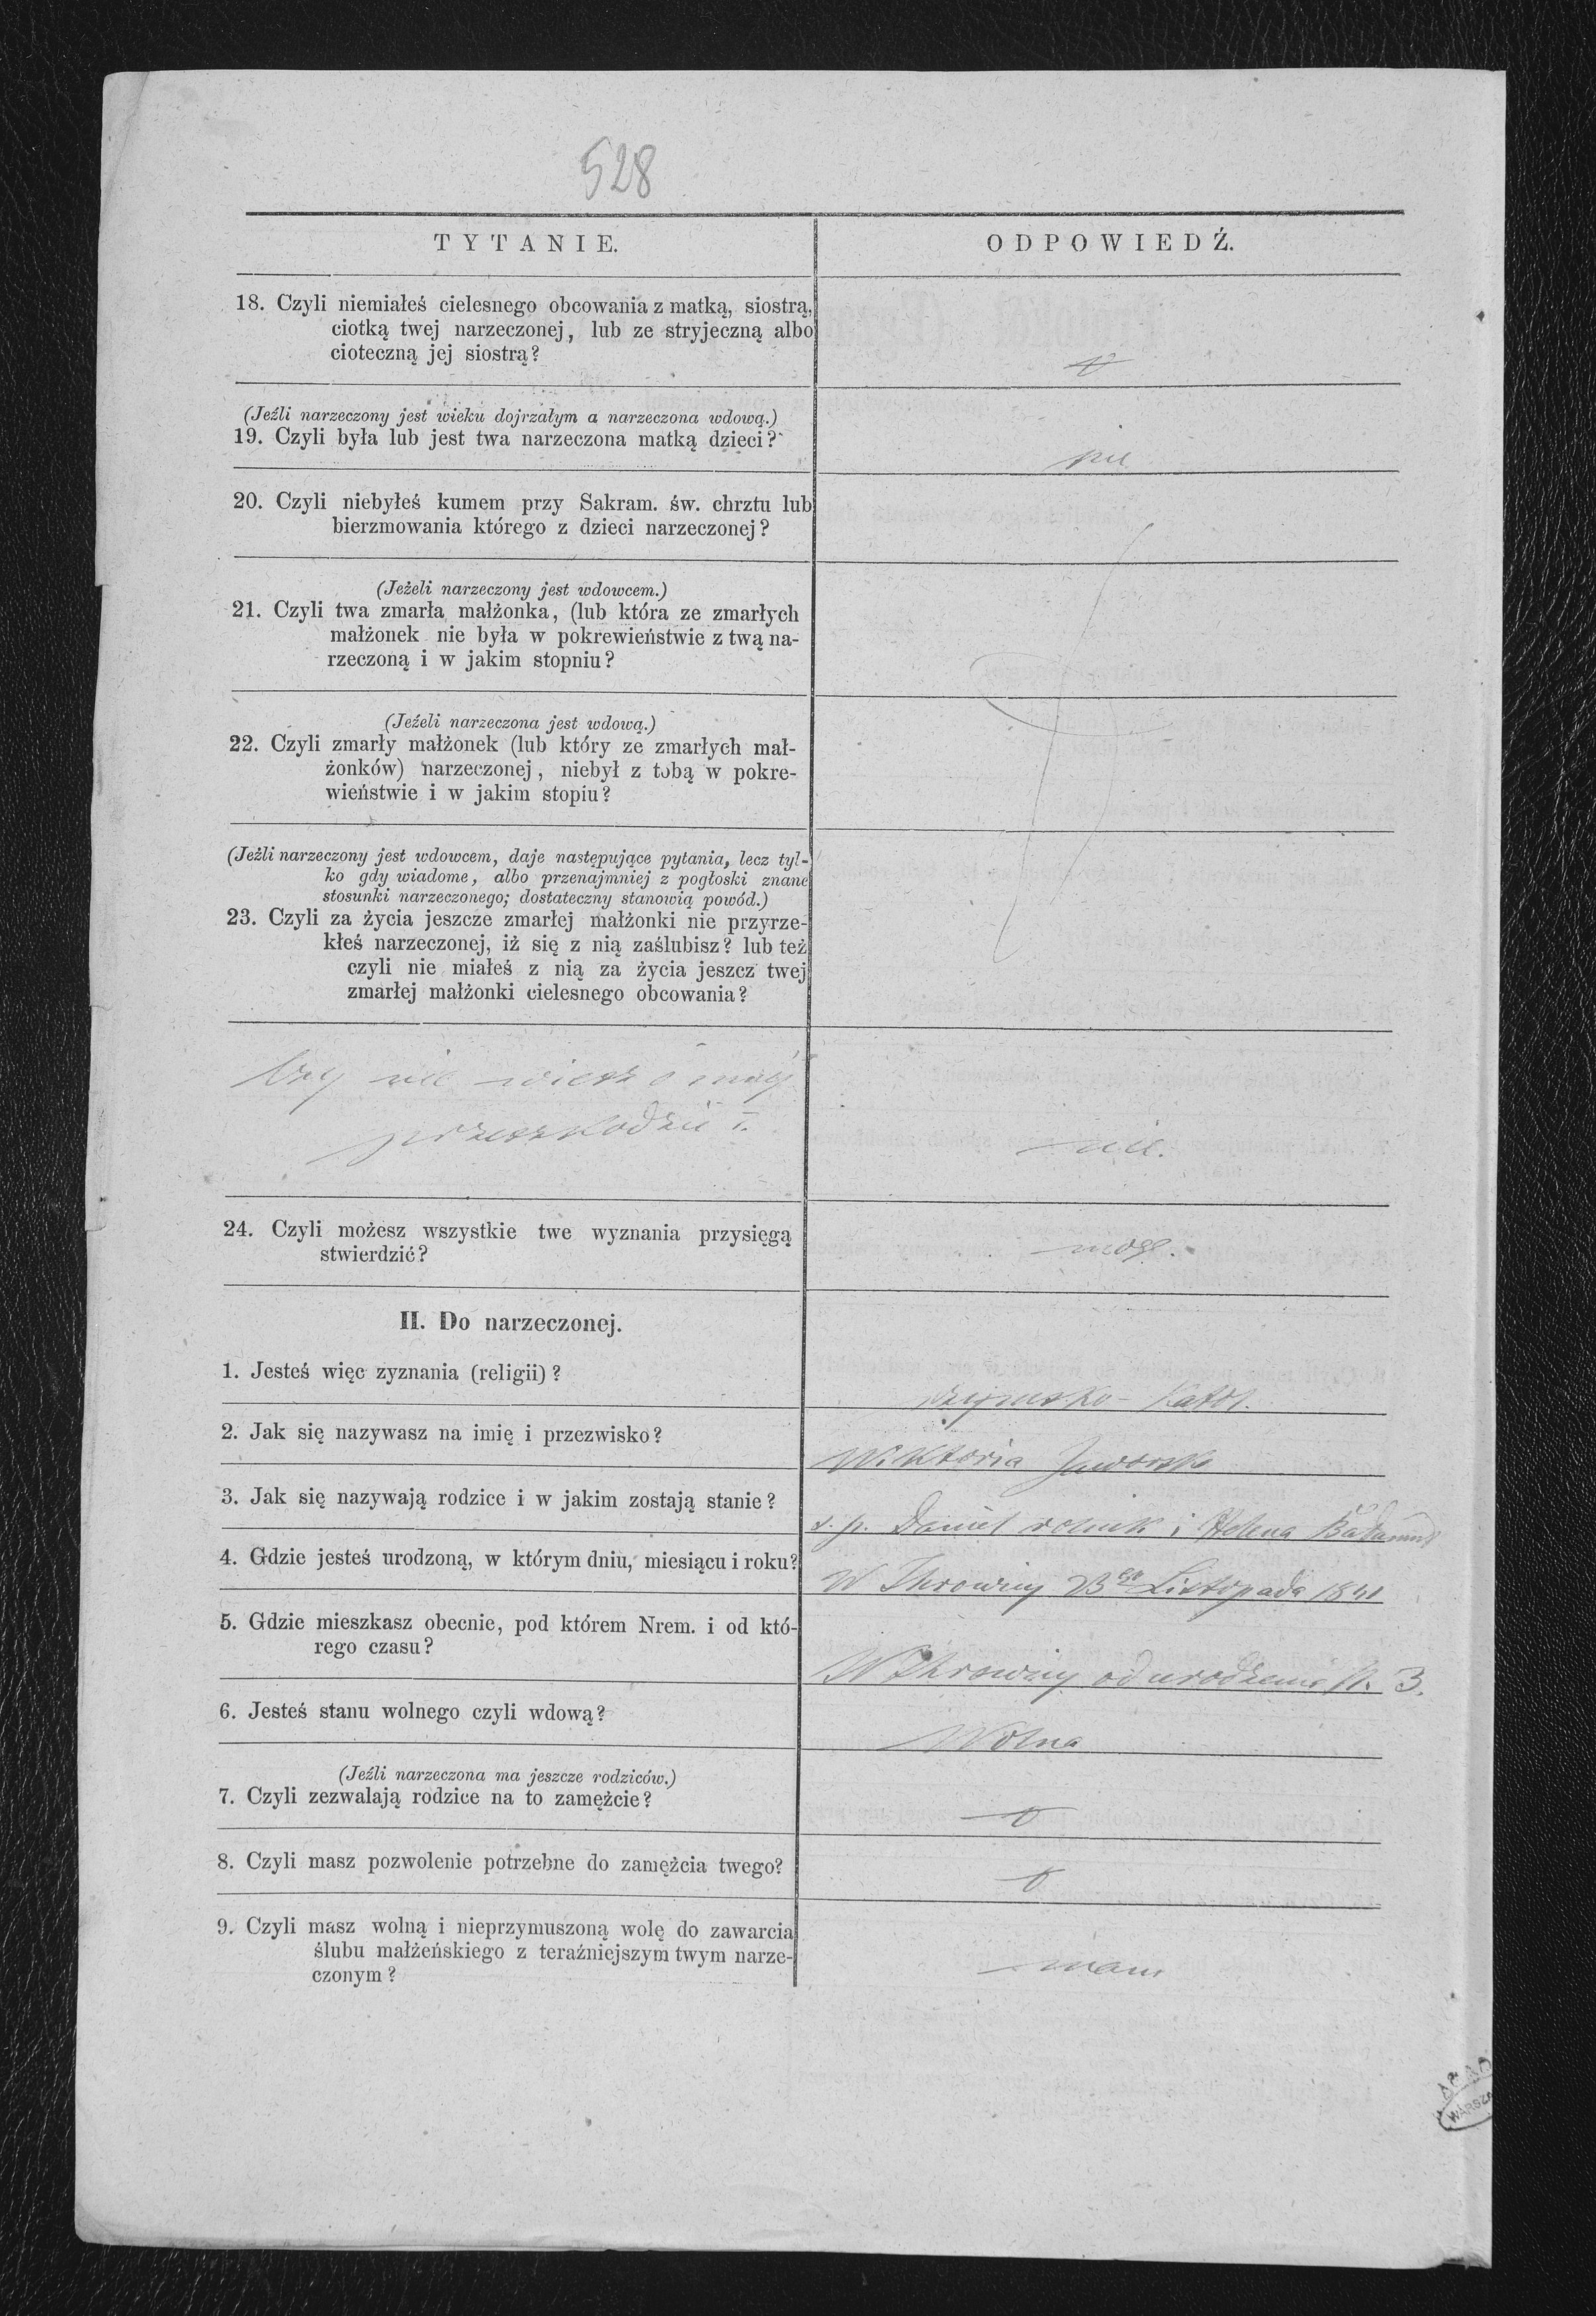 528
TYTANIE.
ODPOWIEDŹ.
18. Czyli niemiałeś cielesnego obcowania z matką, siostrą,
ciotką twej narzeczonej, lub ze stryjeczną albo
cioteczną jej siostrą?
(Jeźli narzeczony jest wieku dojrzałym a narzeczona wdową.)
19. Czyli była lub jest twa narzeczona matką dzieci?
nie
20. Czyli niebyłeś kumem przy Sakram. św. chrztu lub
bierzmowania którego z dzieci narzeczonej?
(Jeżeli narzeczony jest wdowcem.)
21. Czyli twa zmarła małżonka, (lub która ze zmarłych
małżonek nie była w pokrewieństwie z twą na-
rzeczoną i w jakim stopniu?
(Jeźeli narzeczona jest wdową.)
22. Czyli zmarły małżonek (lub który ze zmarłych mał-
żonków) narzeczonej, niebył z tobą w pokre-
wieństwie i w jakim stopiu?
(Jeźli narzeczony jest wdowcem, daje następujące pytania, lecz tyl-
ko gdy wiadome, albo przenajmniej z pogłoski znane
stosunki narzeczonego; dostateczny stanowią powód.)
23. Czyli za życia jeszcze zmarłej małżonki nie przyrze-
kłeś narzeczonej, iż się z nią zaślubisz? lub też
czyli nie miałeś z nią za życia jeszcz twej
zmarłej małżonki cielesnego obcowania?
Czy nie wiesz o
przeszkodzie?
nie.
24. Czyli możesz wszystkie twe wyznania przysięgą
stwierdzić?
mogę.
II. Do narzeczonej.
1. Jesteś więc zyznania (religii)?
rzymsko-katol.
2. Jak się nazywasz na imię i przezwisko?
Wiktoria Jaworska
3. Jak się nazywają rodzice i w jakim zostają stanie?
ś. p. Daniel rolnik i Helena
4. Gdzie jesteś urodzoną, w którym dniu, miesiącu i roku?
W Listopada
5. Gdzie mieszkasz obecnie, pod którem Nrem. i od któ-
rego czasu?
W od urodzenia N. 3.
6. Jesteś stanu wolnego czyli wdową?
Wolna
(Jeźli narzeczona ma jeszcze rodziców.)
7. Czyli zezwalają rodzice na to zamężcie?
8. Czyli masz pozwolenie potrzebne do zamężcia twego?
9. Czyli masz wolną i nieprzymuszoną wolę do zawarcia
ślubu małżeńskiego z teraźniejszym twym narze-
czonym?
mam